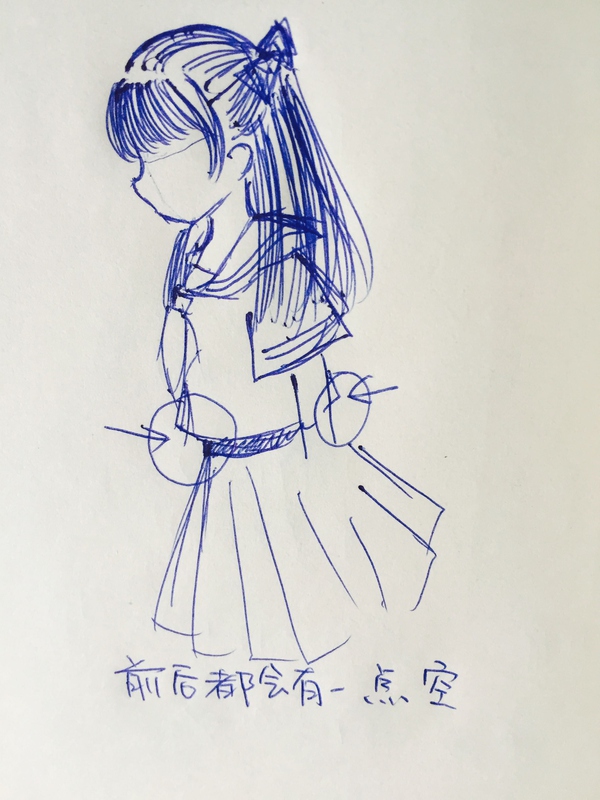 前后都会有一点空